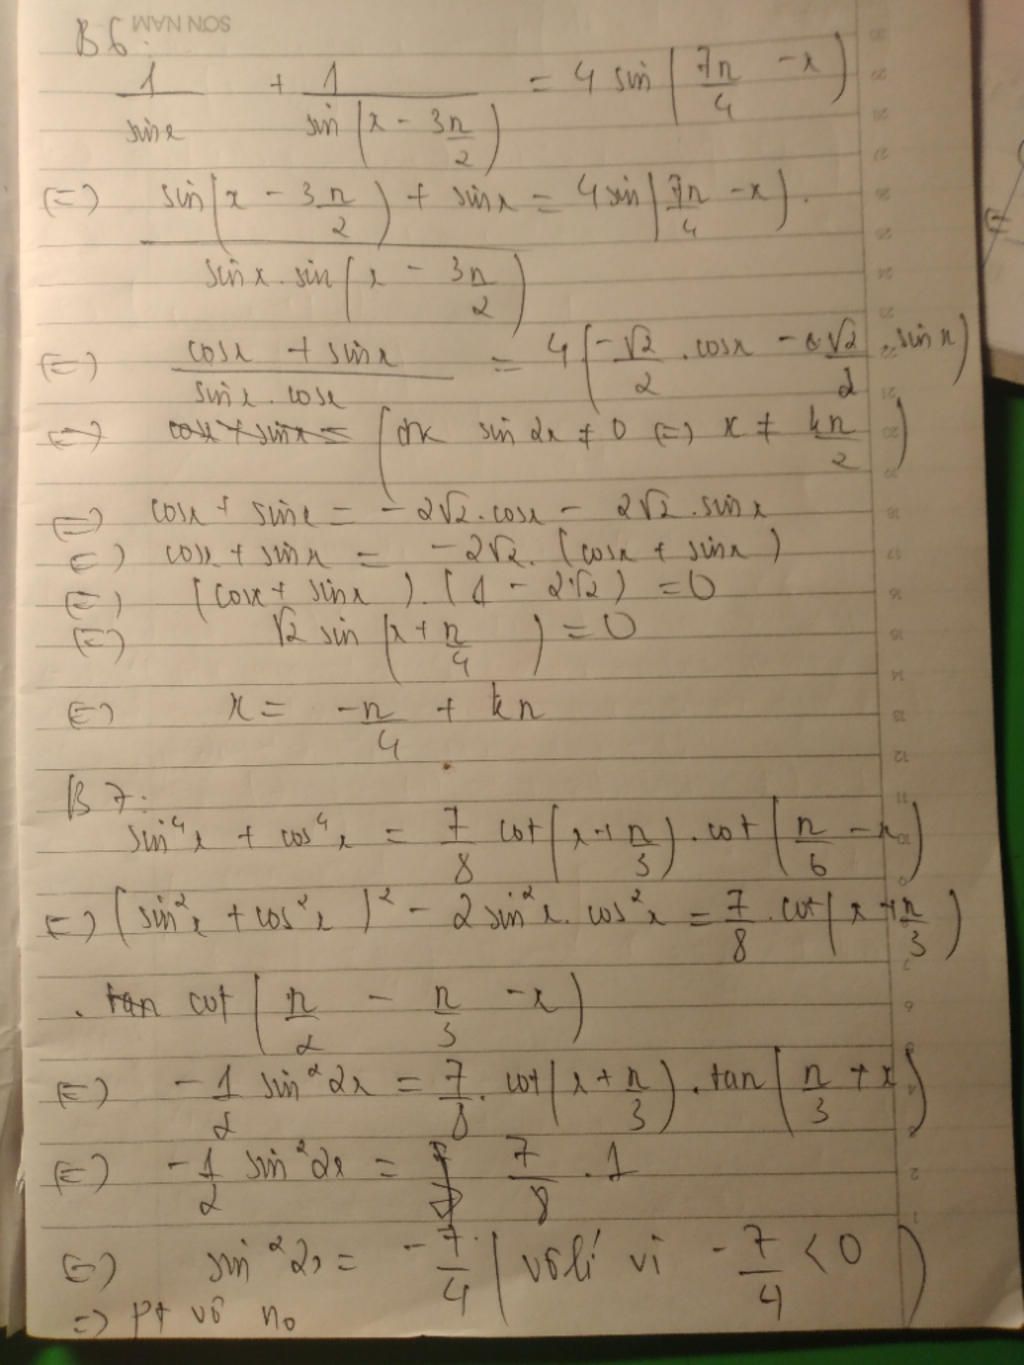 SƠN NAM
B6:
1/sinx + 1/sin(x - 3π/2) = 4 sin(7π/4 - x)
(=) (sin(x - 3π/2) + sinx)/(sinx.sin(x - 3π/2)) = 4sin(7π/4 - x).
(=) (cosx + sinx)/(sinx.cosx) = 4(-√2/2 .cosx - √2/2 .sinx)
(=) cosx + sinx = (đk sin2x ≠ 0 (=) x ≠ kπ/2)
(=) cosx + sinx = -2√2.cosx - 2√2.sinx
(=) cosx + sinx = -2√2.(cosx + sinx)
(=) (cosx + sinx).(1 - 2√2) = 0
(=) √2 sin(x + π/4) = 0
(=) x = -π/4 + kπ
B7:
sin⁴x + cos⁴x = 7/8 cot(x + π/3).cot(π/6 - x)
(=) (sin²x + cos²x)² - 2sin²x.cos²x = 7/8 .cot(x + π/3)
. tan cot(π/2 - π/3 - x)
(=) -1/2 sin²2x = 7/8 .cot(x + π/3).tan(π/3 + x)
(=) -1/2 sin²2x = 7/8 .1
(=) sin²2x = -7/4 (vô lí vì -7/4 < 0)
=) pt vô no